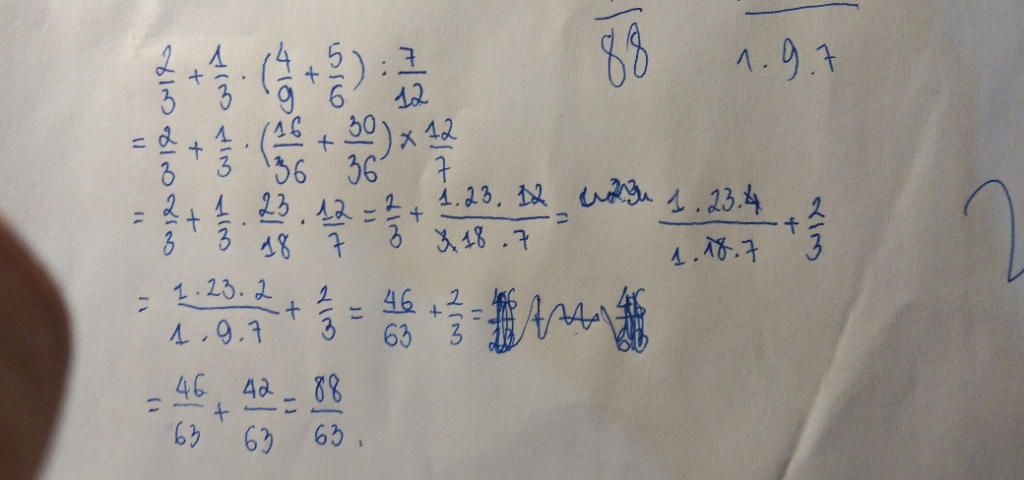 88 1.9.7
2/3 + 1/3 · (4/9 + 5/6) : 7/12
= 2/3 + 1/3 · (16/36 + 30/36) × 12/7
= 2/3 + 1/3 · 23/18 · 12/7 = 2/3 + 1.23.12/3.18.7 = 1.23.4/1.18.7 + 2/3
= 1.23.2/1.9.7 + 2/3 = 46/63 + 2/3 =
= 46/63 + 42/63 = 88/63.